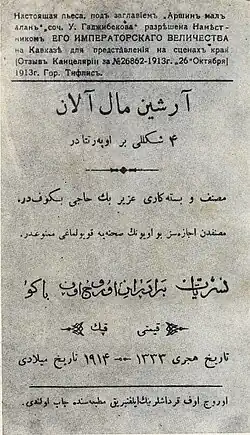 Настоящая пьеса, подъ заглавіемъ „Аршинъ малъ
аланъ“, соч. У. Гаджибекова“ разрѣшена Намѣст-
никомъ ЕГО ИМПЕРАТОРСКАГО ВЕЛИЧЕСТВА
на Кавказѣ для представленія на сценахъ края
(Отзывъ Канцеляріи за №26862-1913г. „26“ Октября
1913г. Гор. Тифлисъ.
آرشین مال آلان
۴ شکللی بر اوپه‌رتا در
مصنف و بسته‌کاری عزیر بك حاجی بكوف‌در.
مصنفدن اجازه‌سز بو اویونك صحنه‌یه قویولماغی ممنوعدر.
برادران اوروج اوف باکو
قیمتی قپك
تاریخ هجری ۱۳۳۳ — ۱۹۱۴ تاریخ میلادی
اوروج اوف قرداشلرینك ایلقتریق مطبعه‌سنده چاپ اولندی.